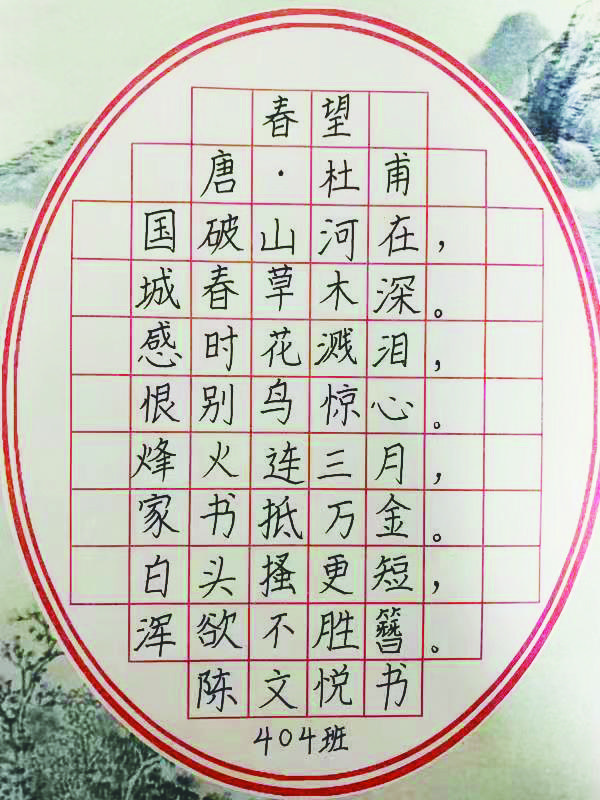 春望
唐·杜甫
国破山河在，
城春草木深。
感时花溅泪，
恨别鸟惊心。
烽火连三月，
家书抵万金。
白头搔更短，
浑欲不胜簪。
陈文悦书
404班